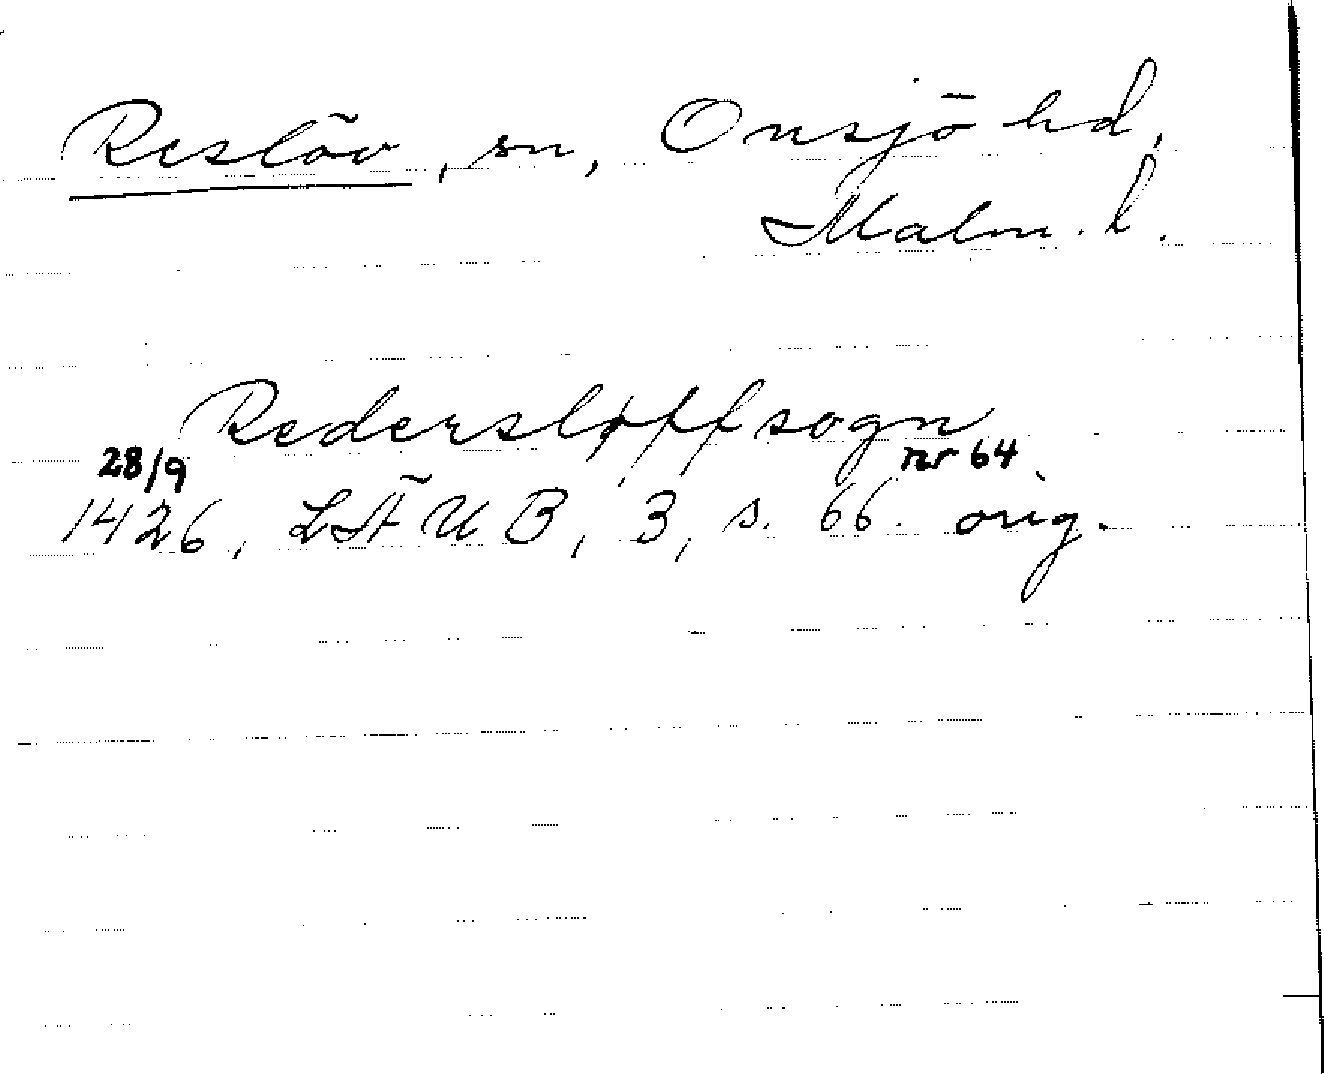 Reslöv, sn, Onsjö hd,
Malm. l.
Redersløffsogn
28/9 nr 64.
1426, LÄUB, 3, s. 66. orig.